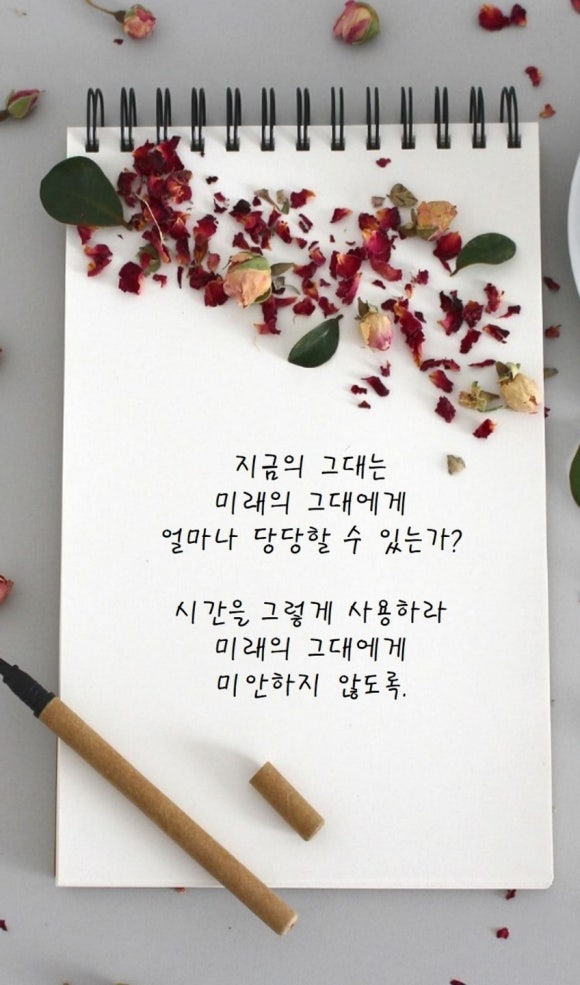 지금의 그대는
미래의 그대에게
얼마나 당당할 수 있는가?
시간을 그렇게 사용하라
미래의 그대에게
미안하지 않도록.